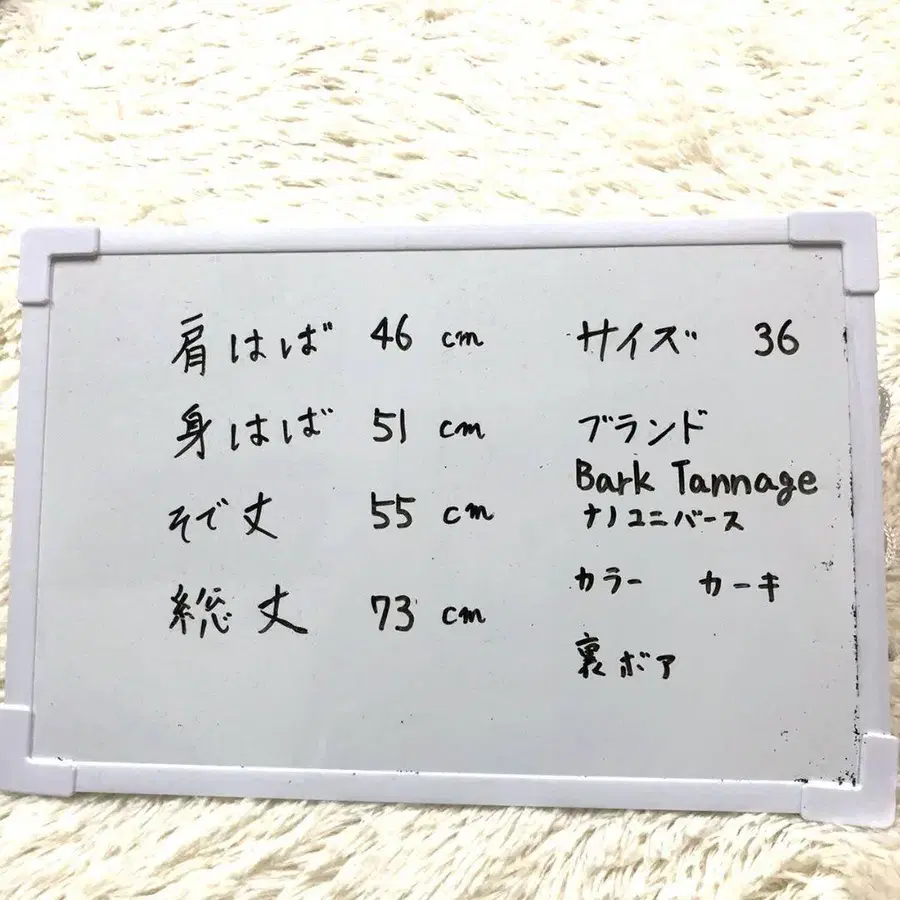 肩はば 46 cm
身はば 51 cm
そで丈 55 cm
総丈 73 cm
サイズ 36
ブランド
Bark Tannage
ナノユニバース
カラー カーキ
裏ボア